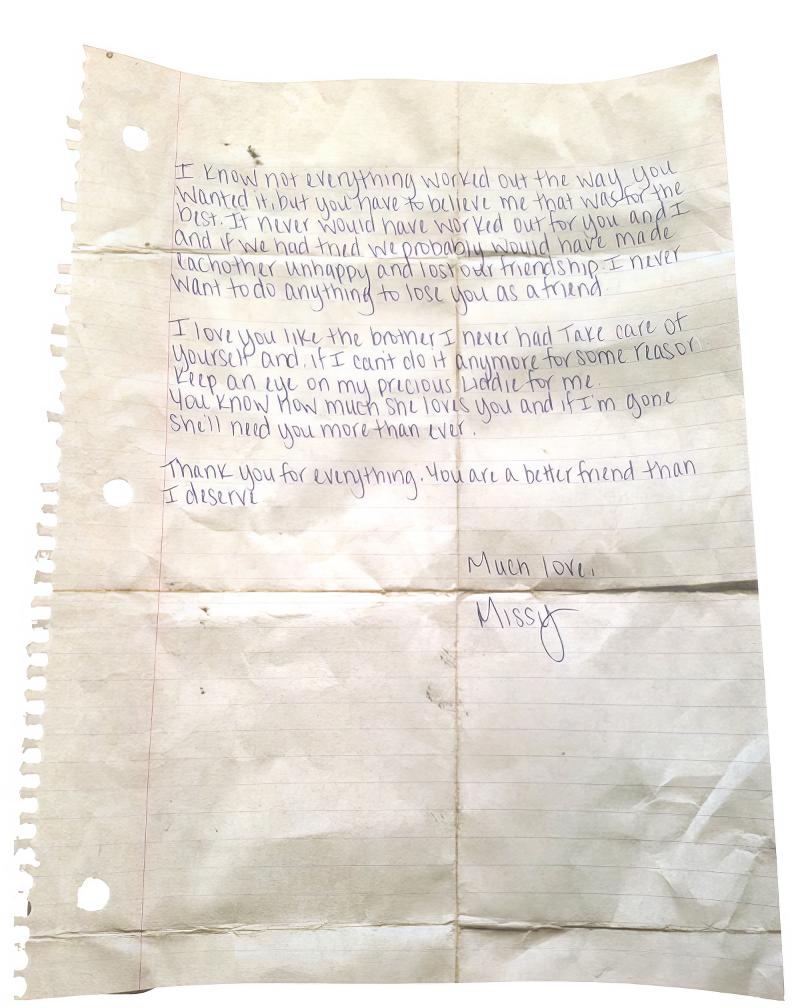 I know not everything worked out the way you
wanted it, but you have to believe me that was for the
best. It never would have worked out for you and I
and if we had tried we probably would have made
eachother unhappy and lost our friendship. I never
want to do anything to lose you as a friend
I love you like the brother I never had Take care of
yourself and, if I can't do it anymore for some reason
Keep an eye on my precious Liddie for me.
You know how much she loves you and if I'm gone
she'll need you more than ever.
Thank you for everything. You are a better friend than
I deserve
Much love,
Missy